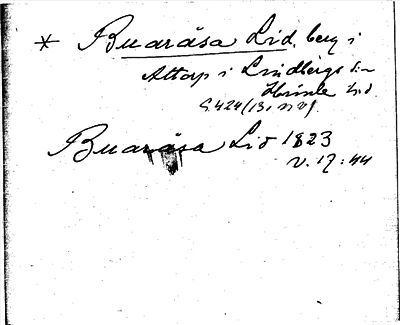 * Buaråsa Lid, berg i
Attorp i Lindbergs sn
Himle hd.
G.424/131 nv.
Buaråsa Lid 1823
v. 17:44